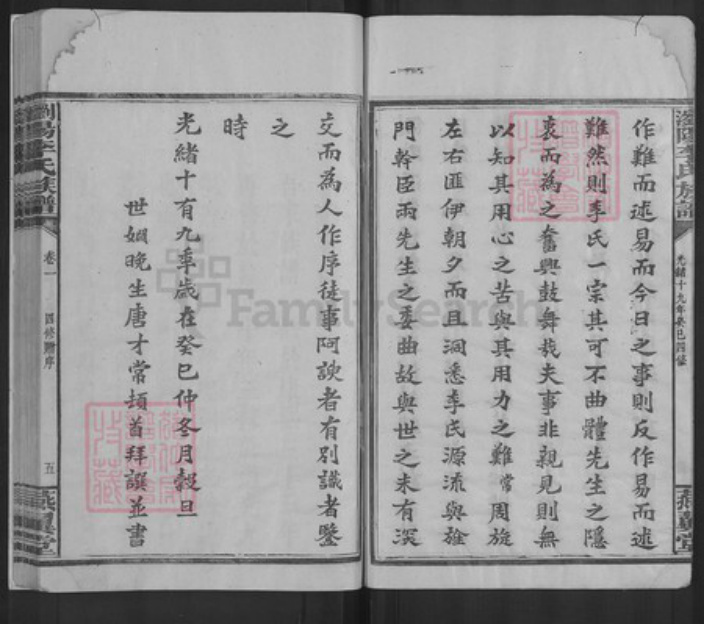 作難而述易而今日之事則反作易而述
難然則李氏一宗其可不曲體先生之隱
衷而為之奮興鼓舞哉夫事非親見則無
以知其用心之苦與其用力之難常周旋
左右匪伊朝夕而且洞悉李氏源流與雅
門幹臣兩先生之委曲故與世之未有深
交而為人作序徒事阿諛者有別識者鑒
之
時
光緒十有九年歲在癸巳仲冬月穀旦
世姻晚生唐才常頓首拜譔並書
瀏陽李氏族譜
光緒十九年癸巳四修
瀏陽李氏族譜
卷一
四修贈序
五
FamilySearch